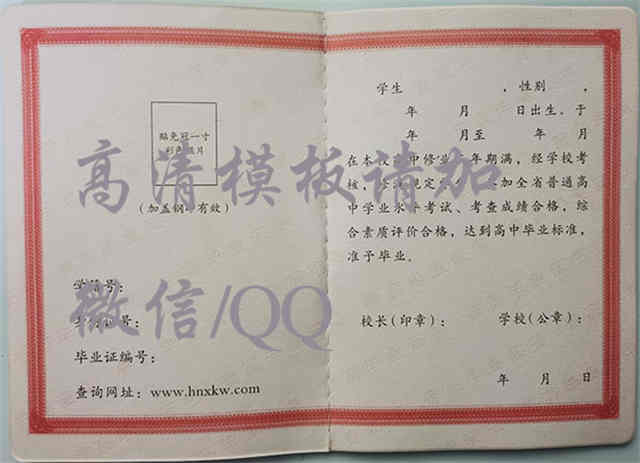 贴免冠一寸
彩色照片
(加盖钢印有效)
学籍号：
号：
毕业证编号：
查询网址：www.hnxkw.com
学生 ，性别 ，
年 月 日出生。于
年 月至 年 月
在本校高中修业 年期满，经学校考
核，修满规定 加全省普通高
中学业水平考试、考查成绩合格，综
合素质评价合格，达到高中毕业标准，
准予毕业。
校长(印章)： 学校(公章)：
年 月 日
高清模板请加
微信/QQ